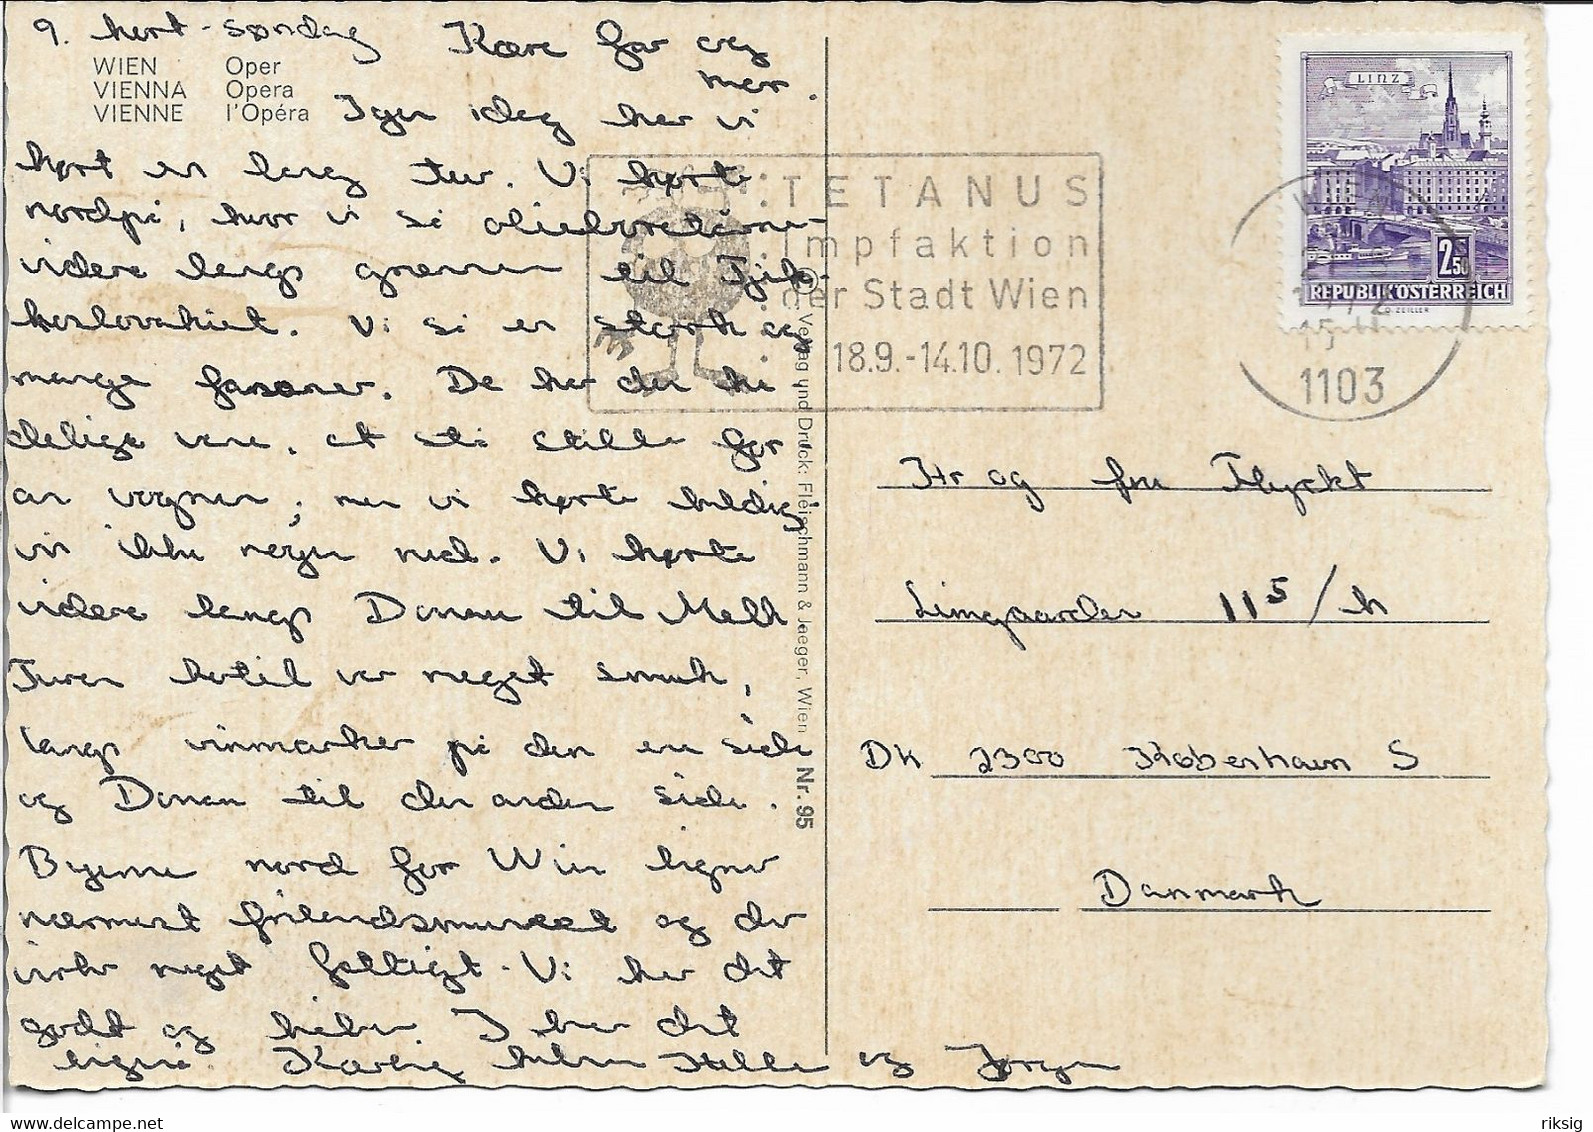 9. kort - søndag Kære far og
mor.
WIEN Oper
VIENNA Opera
VIENNE l'Opéra
Igen idag har vi
kørt en lang tur. Vi kørte
nordpå, hvor vi så olieboretårne
videre langs grænsen til Tjek-
koslovakiet. Vi så en stork og
mange fasaner. De har du ka
deligt være, at stå stille for
an vognen, men vi kørte heldig-
vis ikke nogen ned. Vi kørte
videre langs Donau til Melk
Turen hertil var meget smuk,
langs vinmarker på den ene side
og Donau til den anden side.
Byerne nord for Wien ligner
nærmest frilandsmuseet og der
virker meget fattigt. Vi har det
godt og håber I har det
ligeså. Kærlig hilsen Helle og Jørgen
TETANUS
Impfaktion
der Stadt Wien
18.9.-14.10. 1972
Verlag und Druck: Fleischmann & Jaeger, Wien Nr. 95
LINZ
2.50
REPUBLIK ÖSTERREICH
O. ZEILLER
WIEN
1103
Hr og fru Flyckt
Limgaarden 11⁵/h
DK 2300 København S
Danmark
riksig